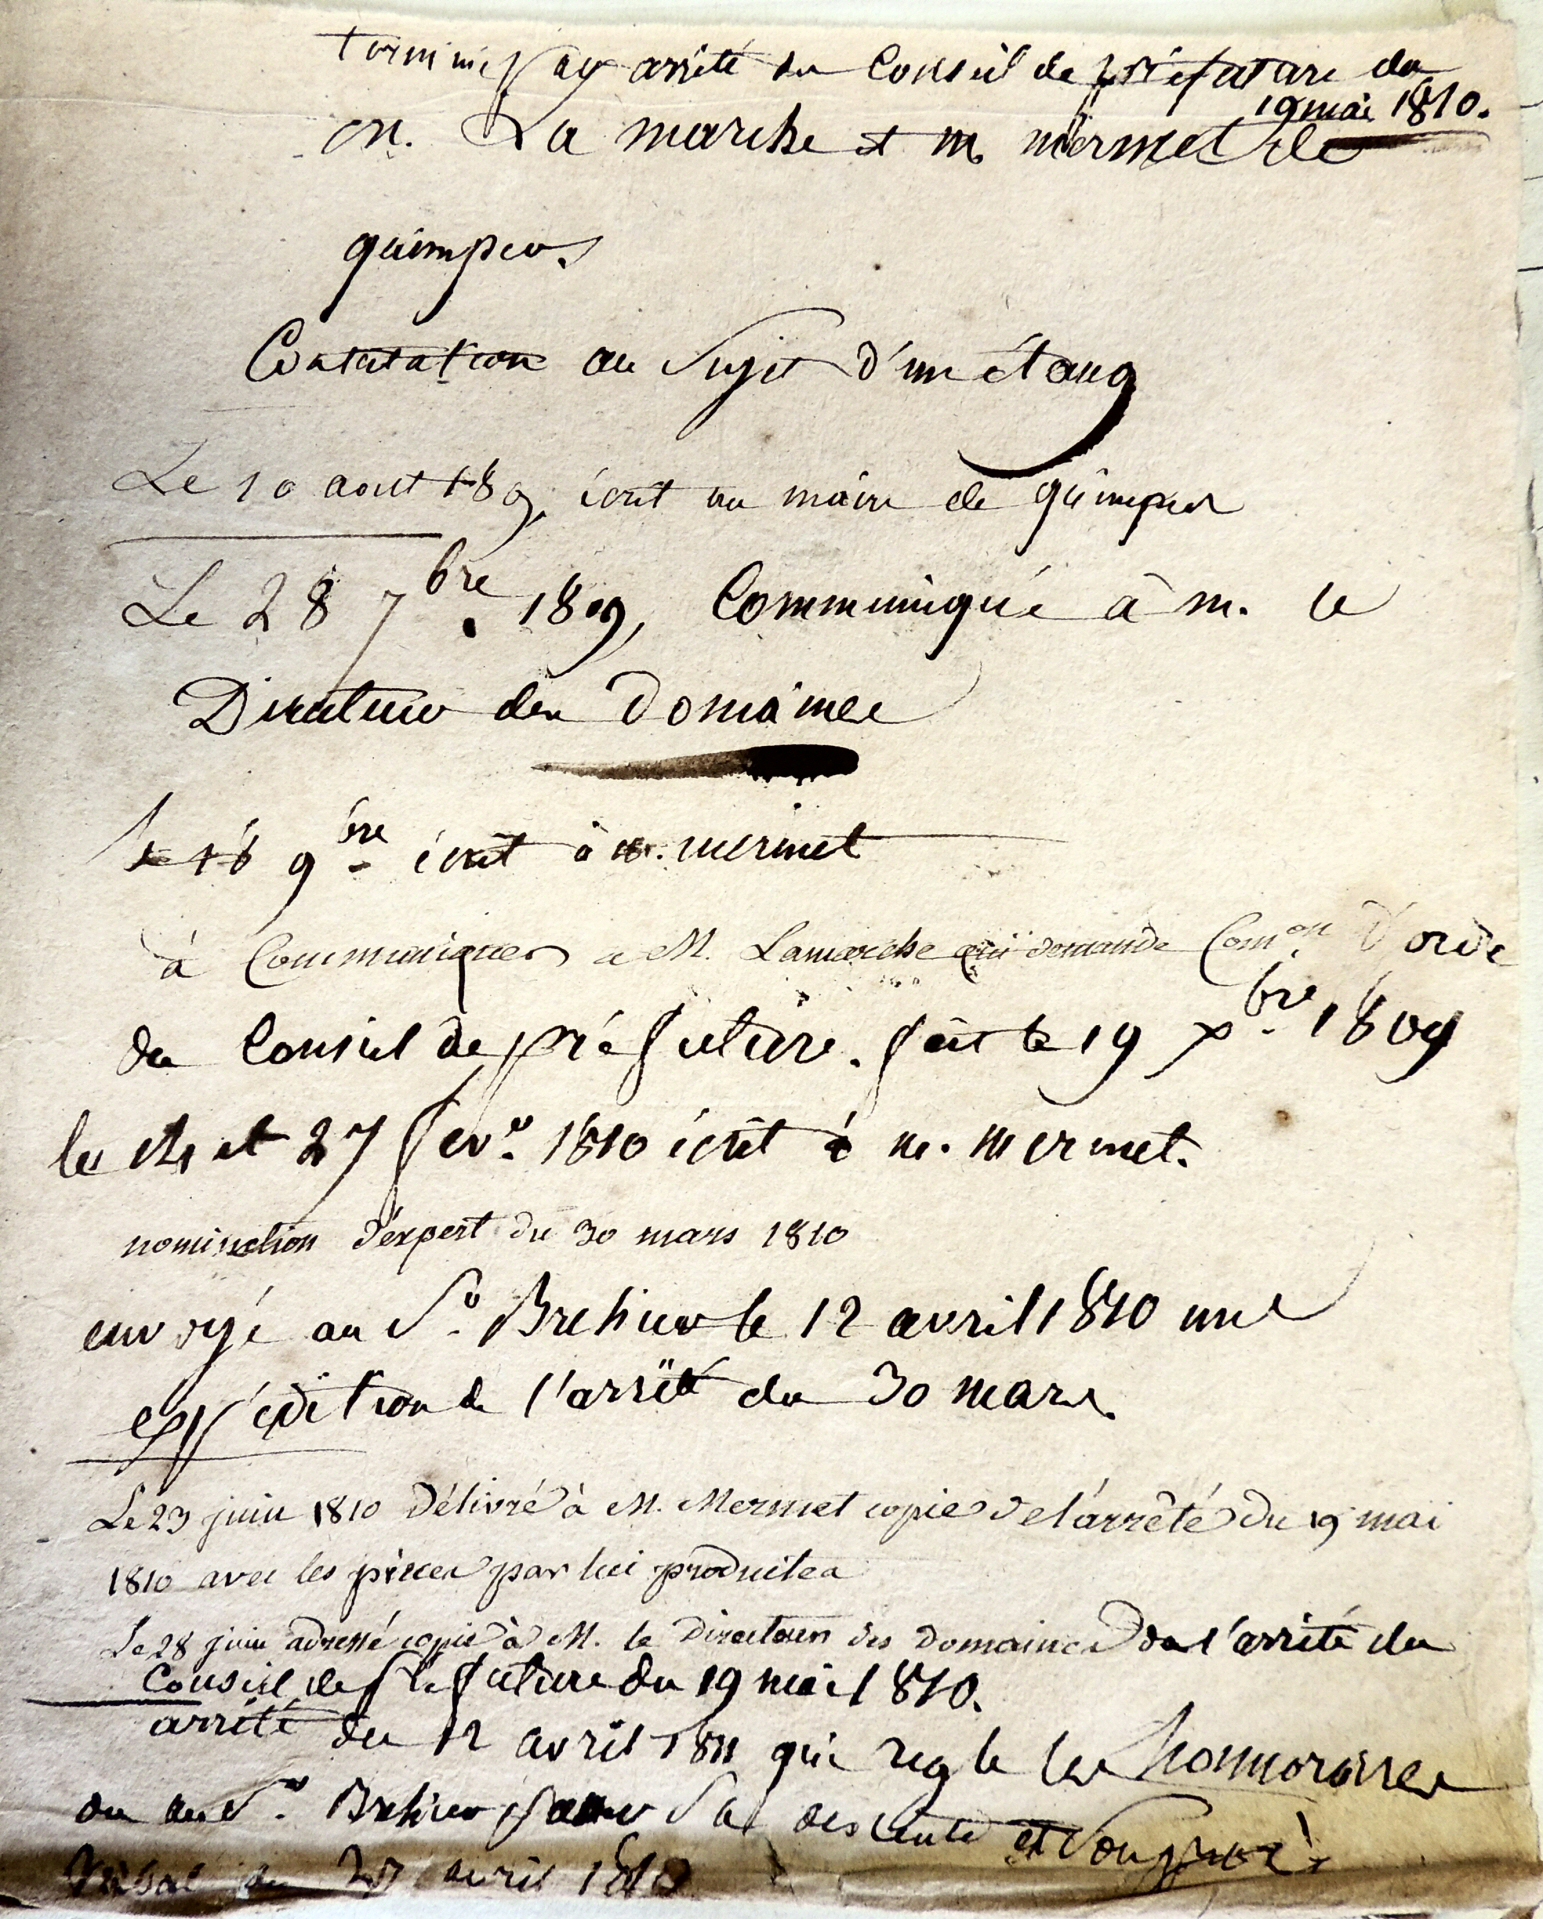 terminé par arrêté du Conseil de préfecture du
19 mai 1810.
M. La marche et m. mermet de
quimper.
Contestation au Sujet d'un étang
Le 10 aout 1809, écrit au maire de quimper
Le 28 7bre. 1809, Communiqué à m. le
Directeur des Domaines
le 16 9bre écrit à m. mermet
à Communiquer a M. Lamarche qui demande Comon. d'ordre
du Conseil de préfecture. fait le 19 Xbre 1809
le et 27 fevr. 1810 écrit à m. mermet.
nomination d'éxpert du 30 mars 1810
envoyé au Sr. Brehier le 12 avril 1810 une
expédition de l'arrêté du 30 mars.
Le 23 juin 1810 Délivré à M. Mermet copie de l'arrêté du 19 mai
1810 avec les pièces par lui produites
Le 28 juin adressé copie à M. le Directeur des Domaines de l'arrêté du
Conseil de Préfecture du 19 mai 1810.
arrêté du 12 avril 1811 qui regle les honnoraires
du Sr. Brehier pour Sa descente et Son procè
Verbal du avril 1810